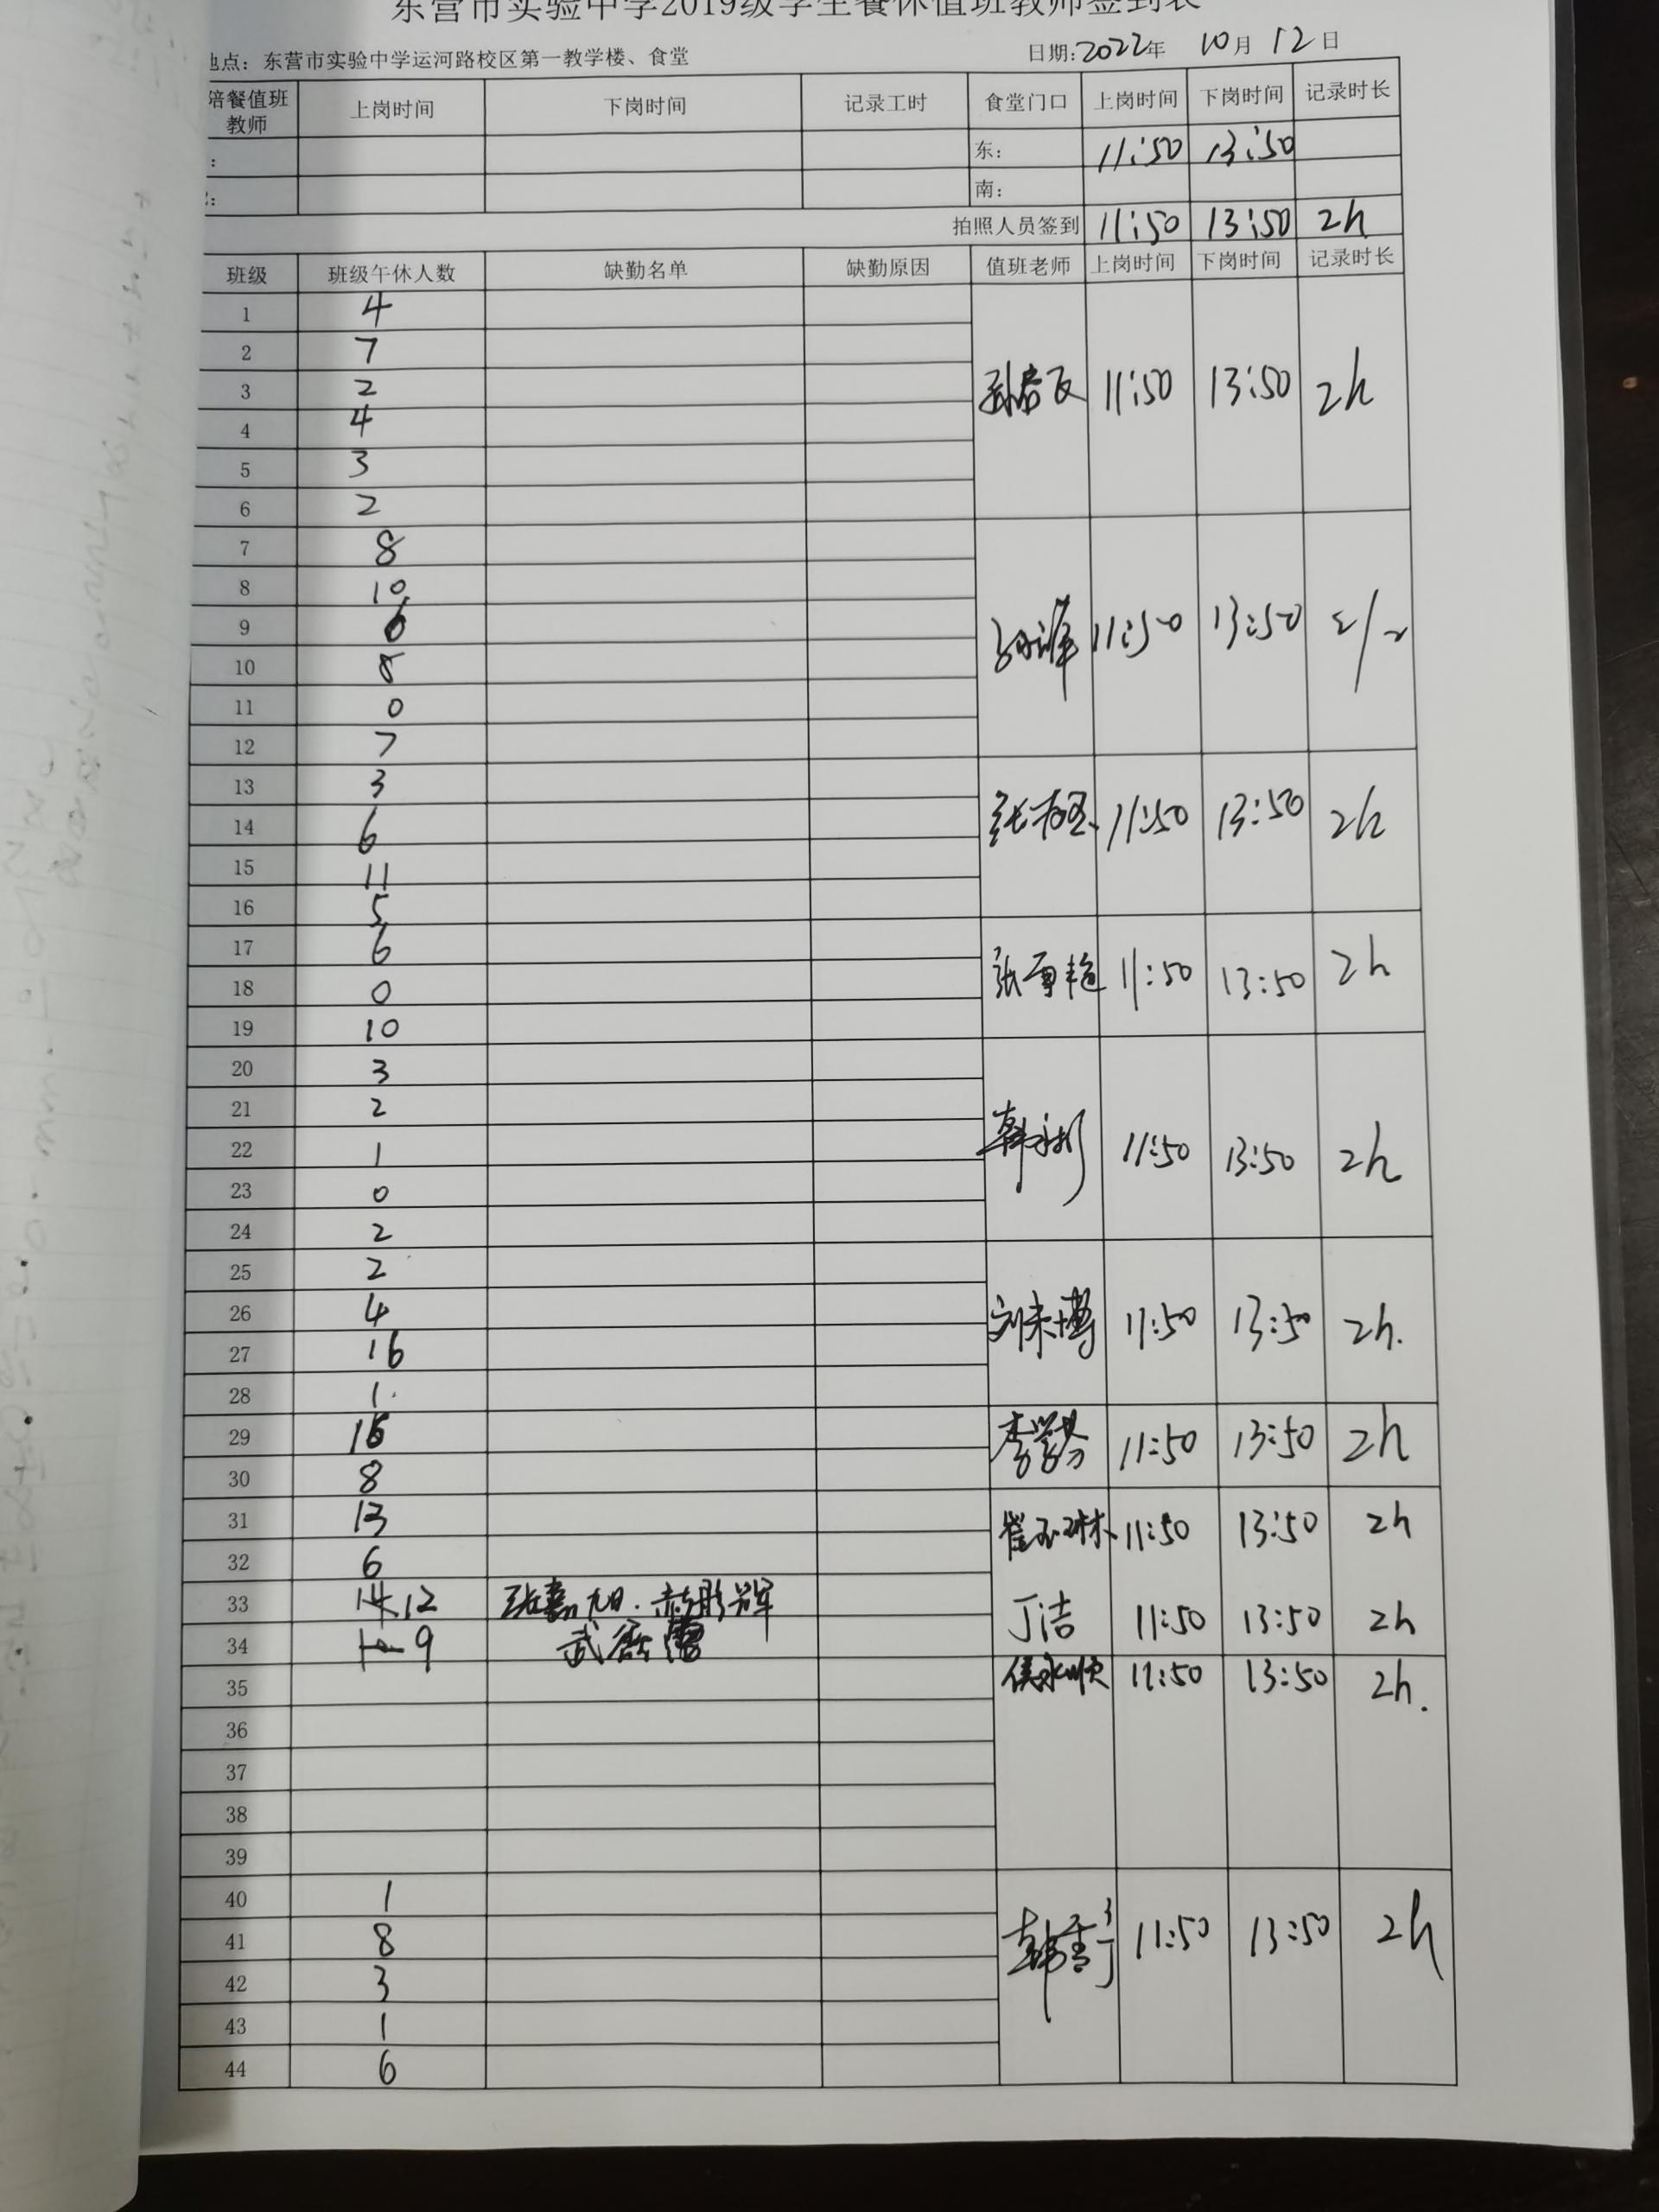 东营市实验中学2019级学生餐休值班教师签到表
地点：东营市实验中学运河路校区第一教学楼、食堂 日期:2022年 10月 12日
陪餐值班教师 上岗时间 下岗时间 记录工时 食堂门口 上岗时间 下岗时间 记录时长
： 东： 11:50 13:50
： 南：
拍照人员签到 11:50 13:50 2h
班级 班级午休人数 缺勤名单 缺勤原因 值班老师 上岗时间 下岗时间 记录时长
1 4
2 7
3 2 11:50 13:50 2h
4 4
5 3
6 2
7 8
8 10
9 6 11:50 13:50
10 8
11 0
12 7
13 3
14 6 11:50 13:50 2h
15 11
16 5
17 6
18 0 11:50 13:50 2h
19 10
20 3
21 2
22 1 11:50 13:50 2h
23 0
24 2
25 2
26 4 11:50 13:50 2h.
27 16
28 1
29 16 11:50 13:50 2h
30 8
31 13 崔玉琳 11:50 13:50 2h
32 6
33 12 丁洁 11:50 13:50 2h
34 9
35 侯永顺 11:50 13:50 2h.
36
37
38
39
40 1
41 8 11:50 13:50 2h
42 3
43 1
44 6